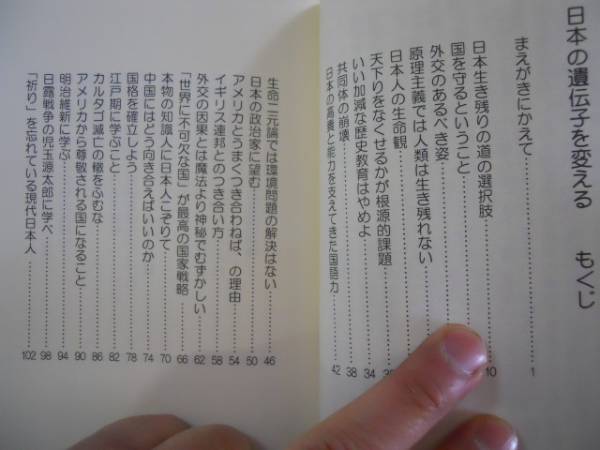 日本の遺伝子を変える　もくじ
まえがきにかえて…………1
日本生き残りの道の選択肢…………10
国を守るということ…………
外交のあるべき姿…………
原理主義では人類は生き残れない…………
日本人の生命観…………
天下りをなくせるかが根源的課題…………
いい加減な歴史教育はやめよ…………34
共同体の崩壊…………38
日本の高貴と能力を支えてきた国語力…………42
生命二元論では環境問題の解決はない…………46
日本の政治家に望む…………50
アメリカとうまくつき合わねば、の理由…………54
イギリス連邦とのつき合い方…………58
外交の因果とは魔法より神秘でむずかしい…………62
「世界に不可欠な国」が最高の国家戦略…………66
本物の知識人に日本人こぞりて…………70
中国にはどう向き合えばいいのか…………74
国格を確立しよう…………78
江戸期に学ぶこと…………82
カルタゴ滅亡の轍をふむな…………86
アメリカから尊敬される国になること…………90
明治維新に学ぶ…………94
日露戦争の児玉源太郎に学べ…………98
「祈り」を忘れている現代日本人…………102